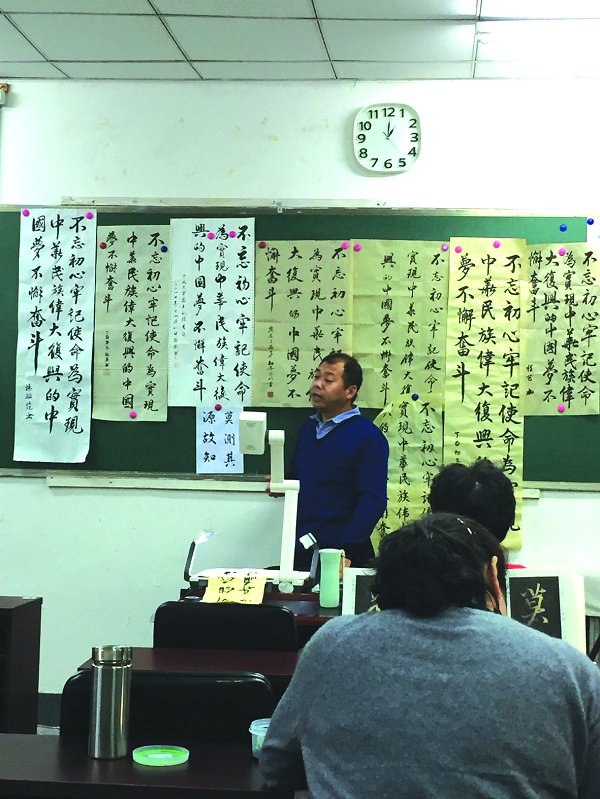 12 1 2 3 4 5 6 7 8 9 10 11
不忘初心牢記使命為實現
中華民族偉大復興的中
國夢不懈奮斗
不忘初心牢記使命為實現
中華民族偉大復興的中國
夢不懈奮斗
不忘初心牢記使命
為實現中華民族偉大復
興的中國夢不懈奮斗
不忘初心牢記使命
為實現中華民族偉
大復興的中國夢不
懈奮斗
不忘初心牢記使命
實現中華民族偉大
興的中國夢不懈奮斗
不忘初心牢記使命為實
中華民族偉大復興的
夢不懈奮斗
不忘初心牢記使命
為實現中華民族偉
大復興的中國夢不
懈奮斗
莫測其
源故知
不忘初心牢記使
現中華民族偉
莫